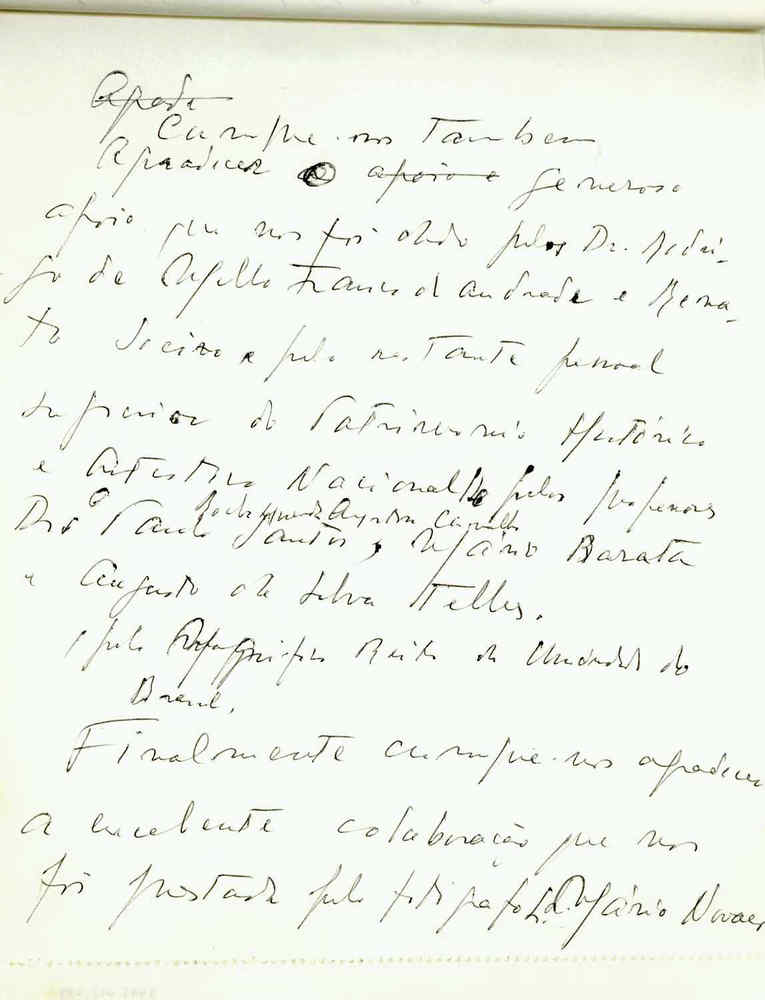 Agrade
Cumpre-nos tambem
Agradecer o apoio e generoso
apoio que nos foi dado pelos Dr. Rodri-
go de Mello Franco d'Andrade e Rena-
to Soeiro e pelo restante pessoal
superior do Patrimonio Historico
e Artistico Nacional, pelos professores
Ayrton Carvalho
Drs Paulo Santos, Mário Barata
e Augusto da Silva Telles.
, pelo Magnifico Reitor da Universidade do
Brasil.
Finalmente cumpre-nos agradecer
a excelente colaboração que nos
foi prestada pelo fotografo Mário Novaes